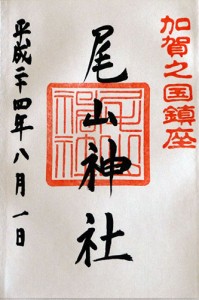 加賀之国鎮座
尾山神社
平成二十四年八月一日